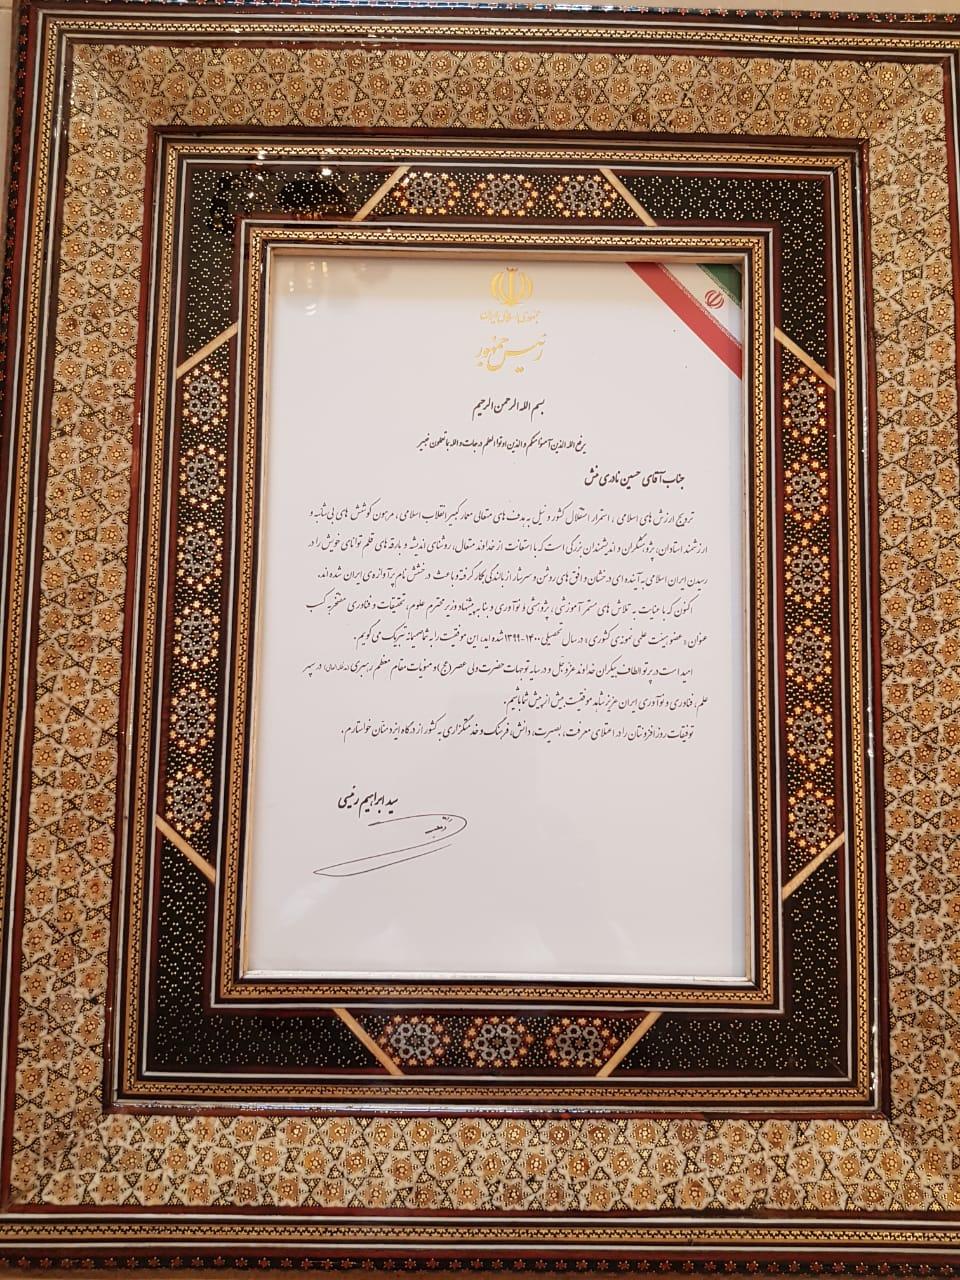 جمهوری اسلامی ایران
رئیس جمهور
بسم الله الرحمن الرحیم
یرفع الله الذین آمنوا منکم و الذین اوتوا العلم درجات و الله بما تعملون خبیر
جناب آقای حسین نادری منش
ترویج ارزش های اسلامی ، استمرار استقلال کشور و نیل به هدف های متعالی معمار کبیر انقلاب اسلامی ، مرهون کوشش های بی شائبه و
ارزشمند استادان، پژوهشگران و اندیشمندان بزرگی است که با استعانت از خداوند متعال، روشنای اندیشه و بارقه های قلم توانای خویش را در
رسیدن ایران اسلامی به آینده ای درخشان و افق های روشن و سرشار از بالندگی بکار گرفته و باعث درخشش نام پرآوازه ی ایران شده اند.
اکنون که با عنایت به تلاش های مستمر آموزشی ، پژوهشی و نوآوری و بنا به پیشنهاد وزیر محترم علوم، تحقیقات و فناوری مفتخر به کسب
عنوان « عضو هیئت علمی نمونه ی کشوری » در سال تحصیلی ۱۴۰۰-۱۳۹۹ شده اید، این موفقیت را به شما صمیمانه تبریک می گویم.
امید است در پرتو الطاف بیکران خداوند عزوجل و در سایه توجهات حضرت ولی عصر (عج) و منویات مقام معظم رهبری (مدظله العالی) در سپهر
علم، فناوری و نوآوری ایران عزیز شاهد موفقیت بیش از پیش شما باشیم.
توفیقات روز افزونتان را در اعتلای معرفت، بصیرت، دانش، فرهنگ و خدمتگزاری به کشور از درگاه ایزد منان خواستارم.
سید ابراهیم رئیسی